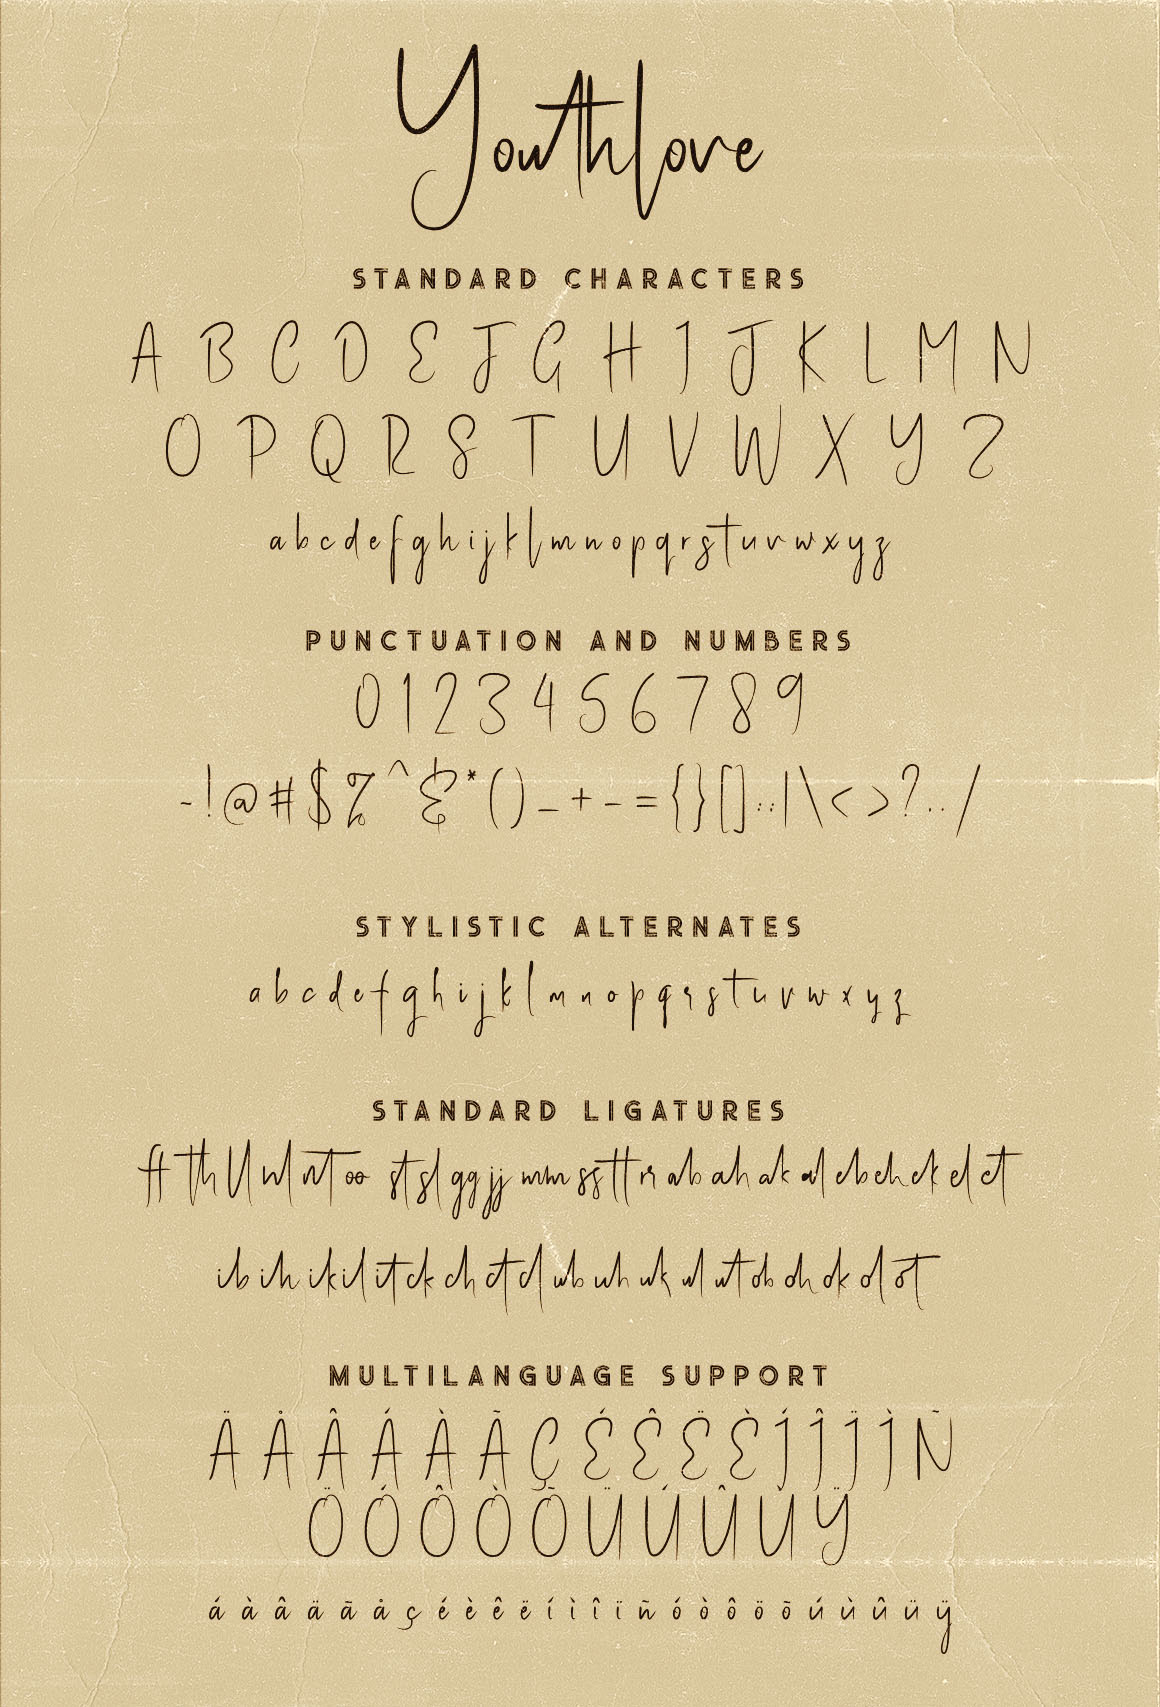 Youthlove
STANDARD CHARACTERS
A B C D E F G H I J K L M N
O P Q R S T U V W X Y Z
a b c d e f g h i j k l m n o p q r s t u v w x y z
PUNCTUATION AND NUMBERS
0 1 2 3 4 5 6 7 8 9
- ! @ # $ % ^ & * ( ) _ + - = { } [ ] : ; | \ < > ? . . /
STYLISTIC ALTERNATES
a b c d e f g h i j k l m n o p q r s t u v w x y z
STANDARD LIGATURES
ft th ll nl nt oo st sl gg jj mm ss tt rr ab ah ak al eb eh ek el et
ib ih ik il it ck ch ct cl ub uh uk ul ut ob oh ok ol ot
MULTILANGUAGE SUPPORT
Ä Å Â Á À Ã Ç É Ê Ë È Í Î Ï Ì Ñ
Ö Ó Ô Ò Õ Ü Ú Û Ù Ÿ
á à â ä ã å ç é è ê ë í ì î ï ñ ó ò ô ö õ ú ù û ü ÿ